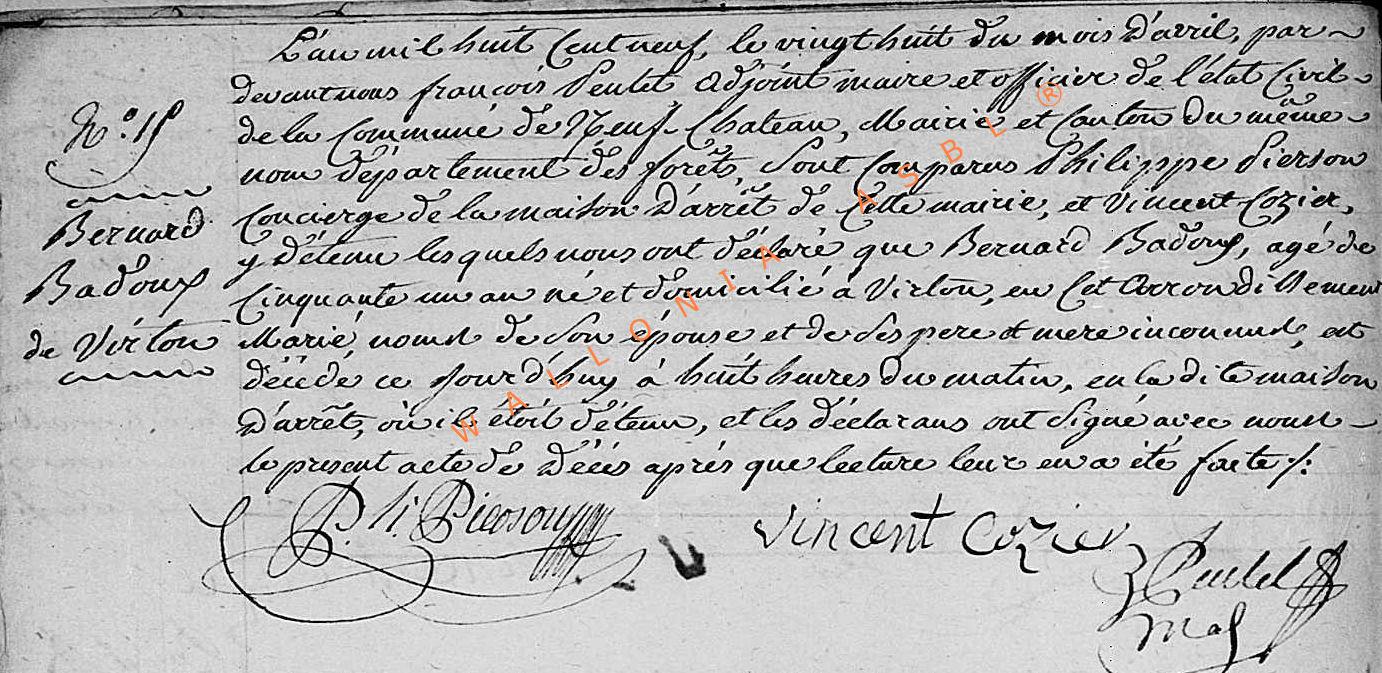 N.° 15
Bernard
Badoux
de Virton
L'an mil huit Cent neuf, le vingt huit du mois D'avril, par-
devant nous françois Peulet Adjoint maire et officier de l'état Civil
de la Commune de Neuf-Chateau, Mairie et Canton du même
nom département des forêts, Sont Comparus Philippe Pierson
Concierge de la maison D'arrêt de Cette mairie, et Vincent Cozier,
y détenu lesquels nous ont déclaré que Bernard Badoux, agé de
Cinquante un an né et domicilié à Virton, en Cet Arrondissement
Marié, noms de Son épouse et de Ses pere et mere inconnus, est
décédé ce Jourd'huy à huit heures du matin, en la dite maison
D'arrêt, où il étoit détenu, et les déclarans ont Signé avec nous
le présent acte de Décès après que lecture leur en a été faite /:
P. h. Pierson
Vincent Cozier
WALLONIA ASBL ®